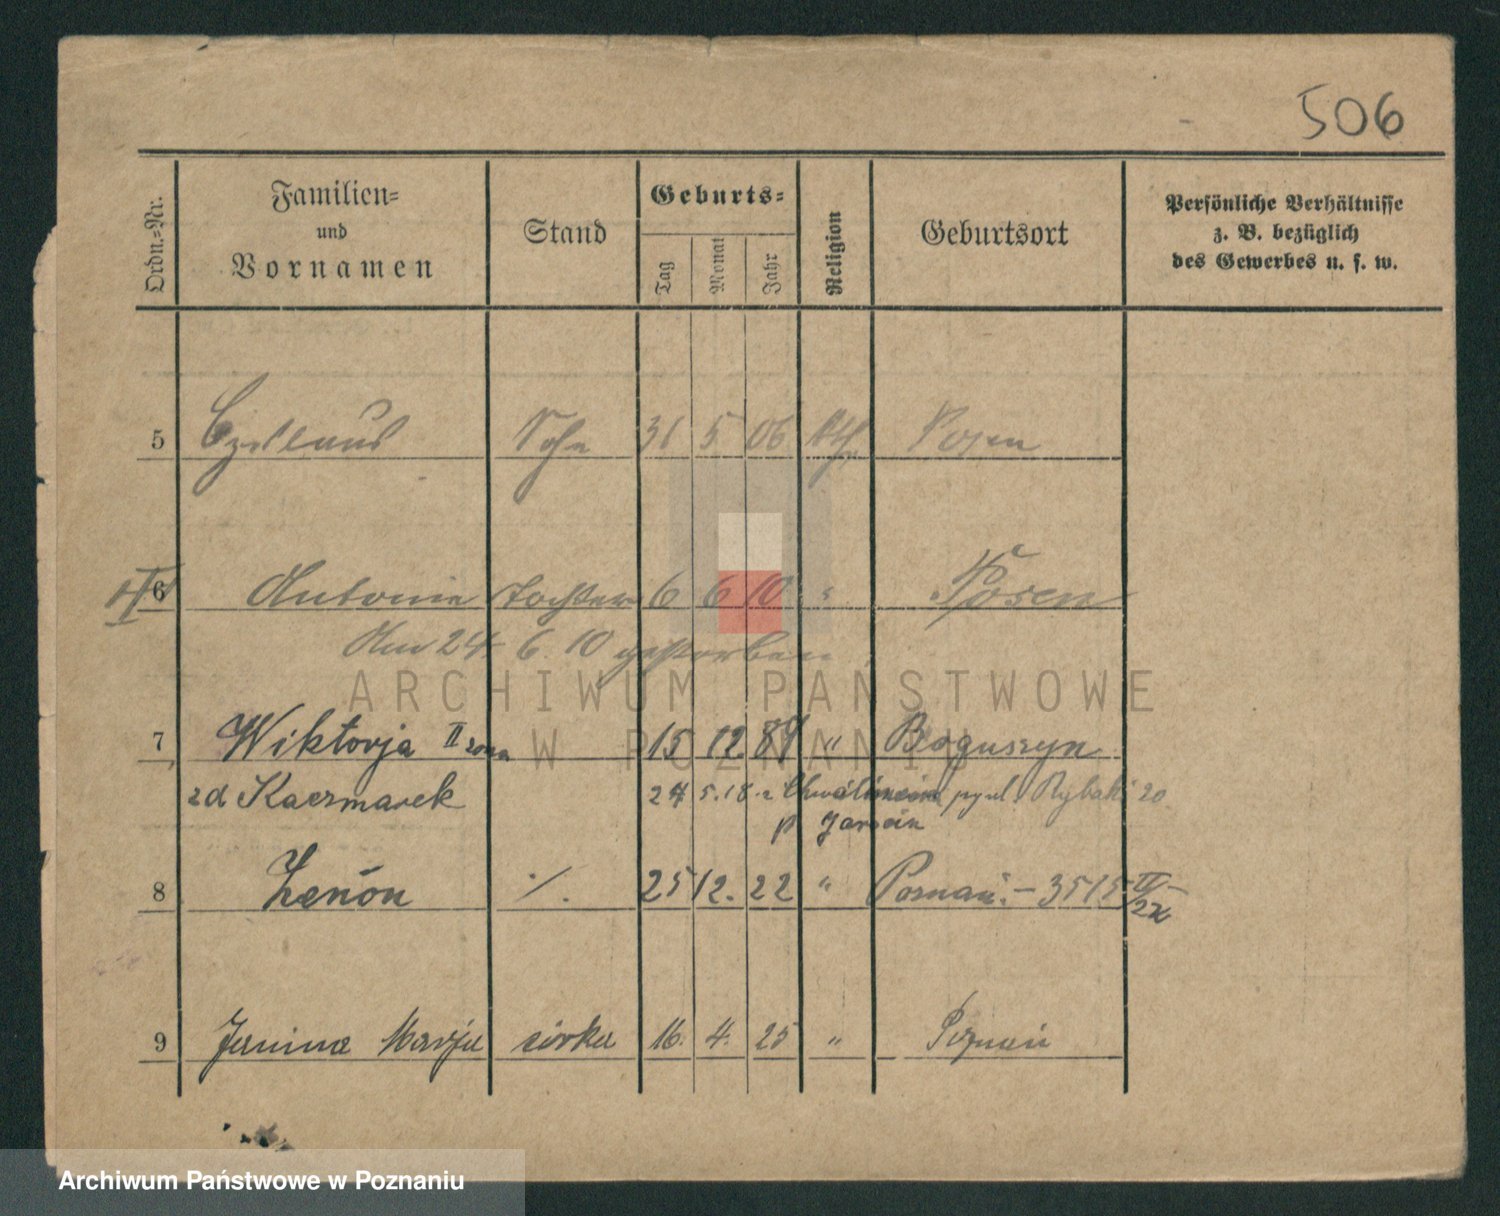 506
Ordn.-Nr.
Familien-
und
Vornamen
Stand
Geburts-
Tag
Monat
Jahr
Religion
Geburtsort
Persönliche Verhältnisse
z. B. bezüglich
des Gewerbes u. s. w.
5 Czeslaus Sohn 31 5 06 kth Posen
6 Antonie Tochter 6 6 10 " Posen
Am 24 6. 10 gestorben
ARCHIWUM PAŃSTWOWE
W POZNANIU
7 Wiktorja II żona 15 12 89 " Boguszyn
zd Kaczmarek 24 5. 18. z Rybaki 20
p Jarocin
8 Zenon ./. 25 12. 22 " Poznań. - 3515
9 Janina Marja córka 16. 4. 25 " Poznań
Archiwum Państwowe w Poznaniu